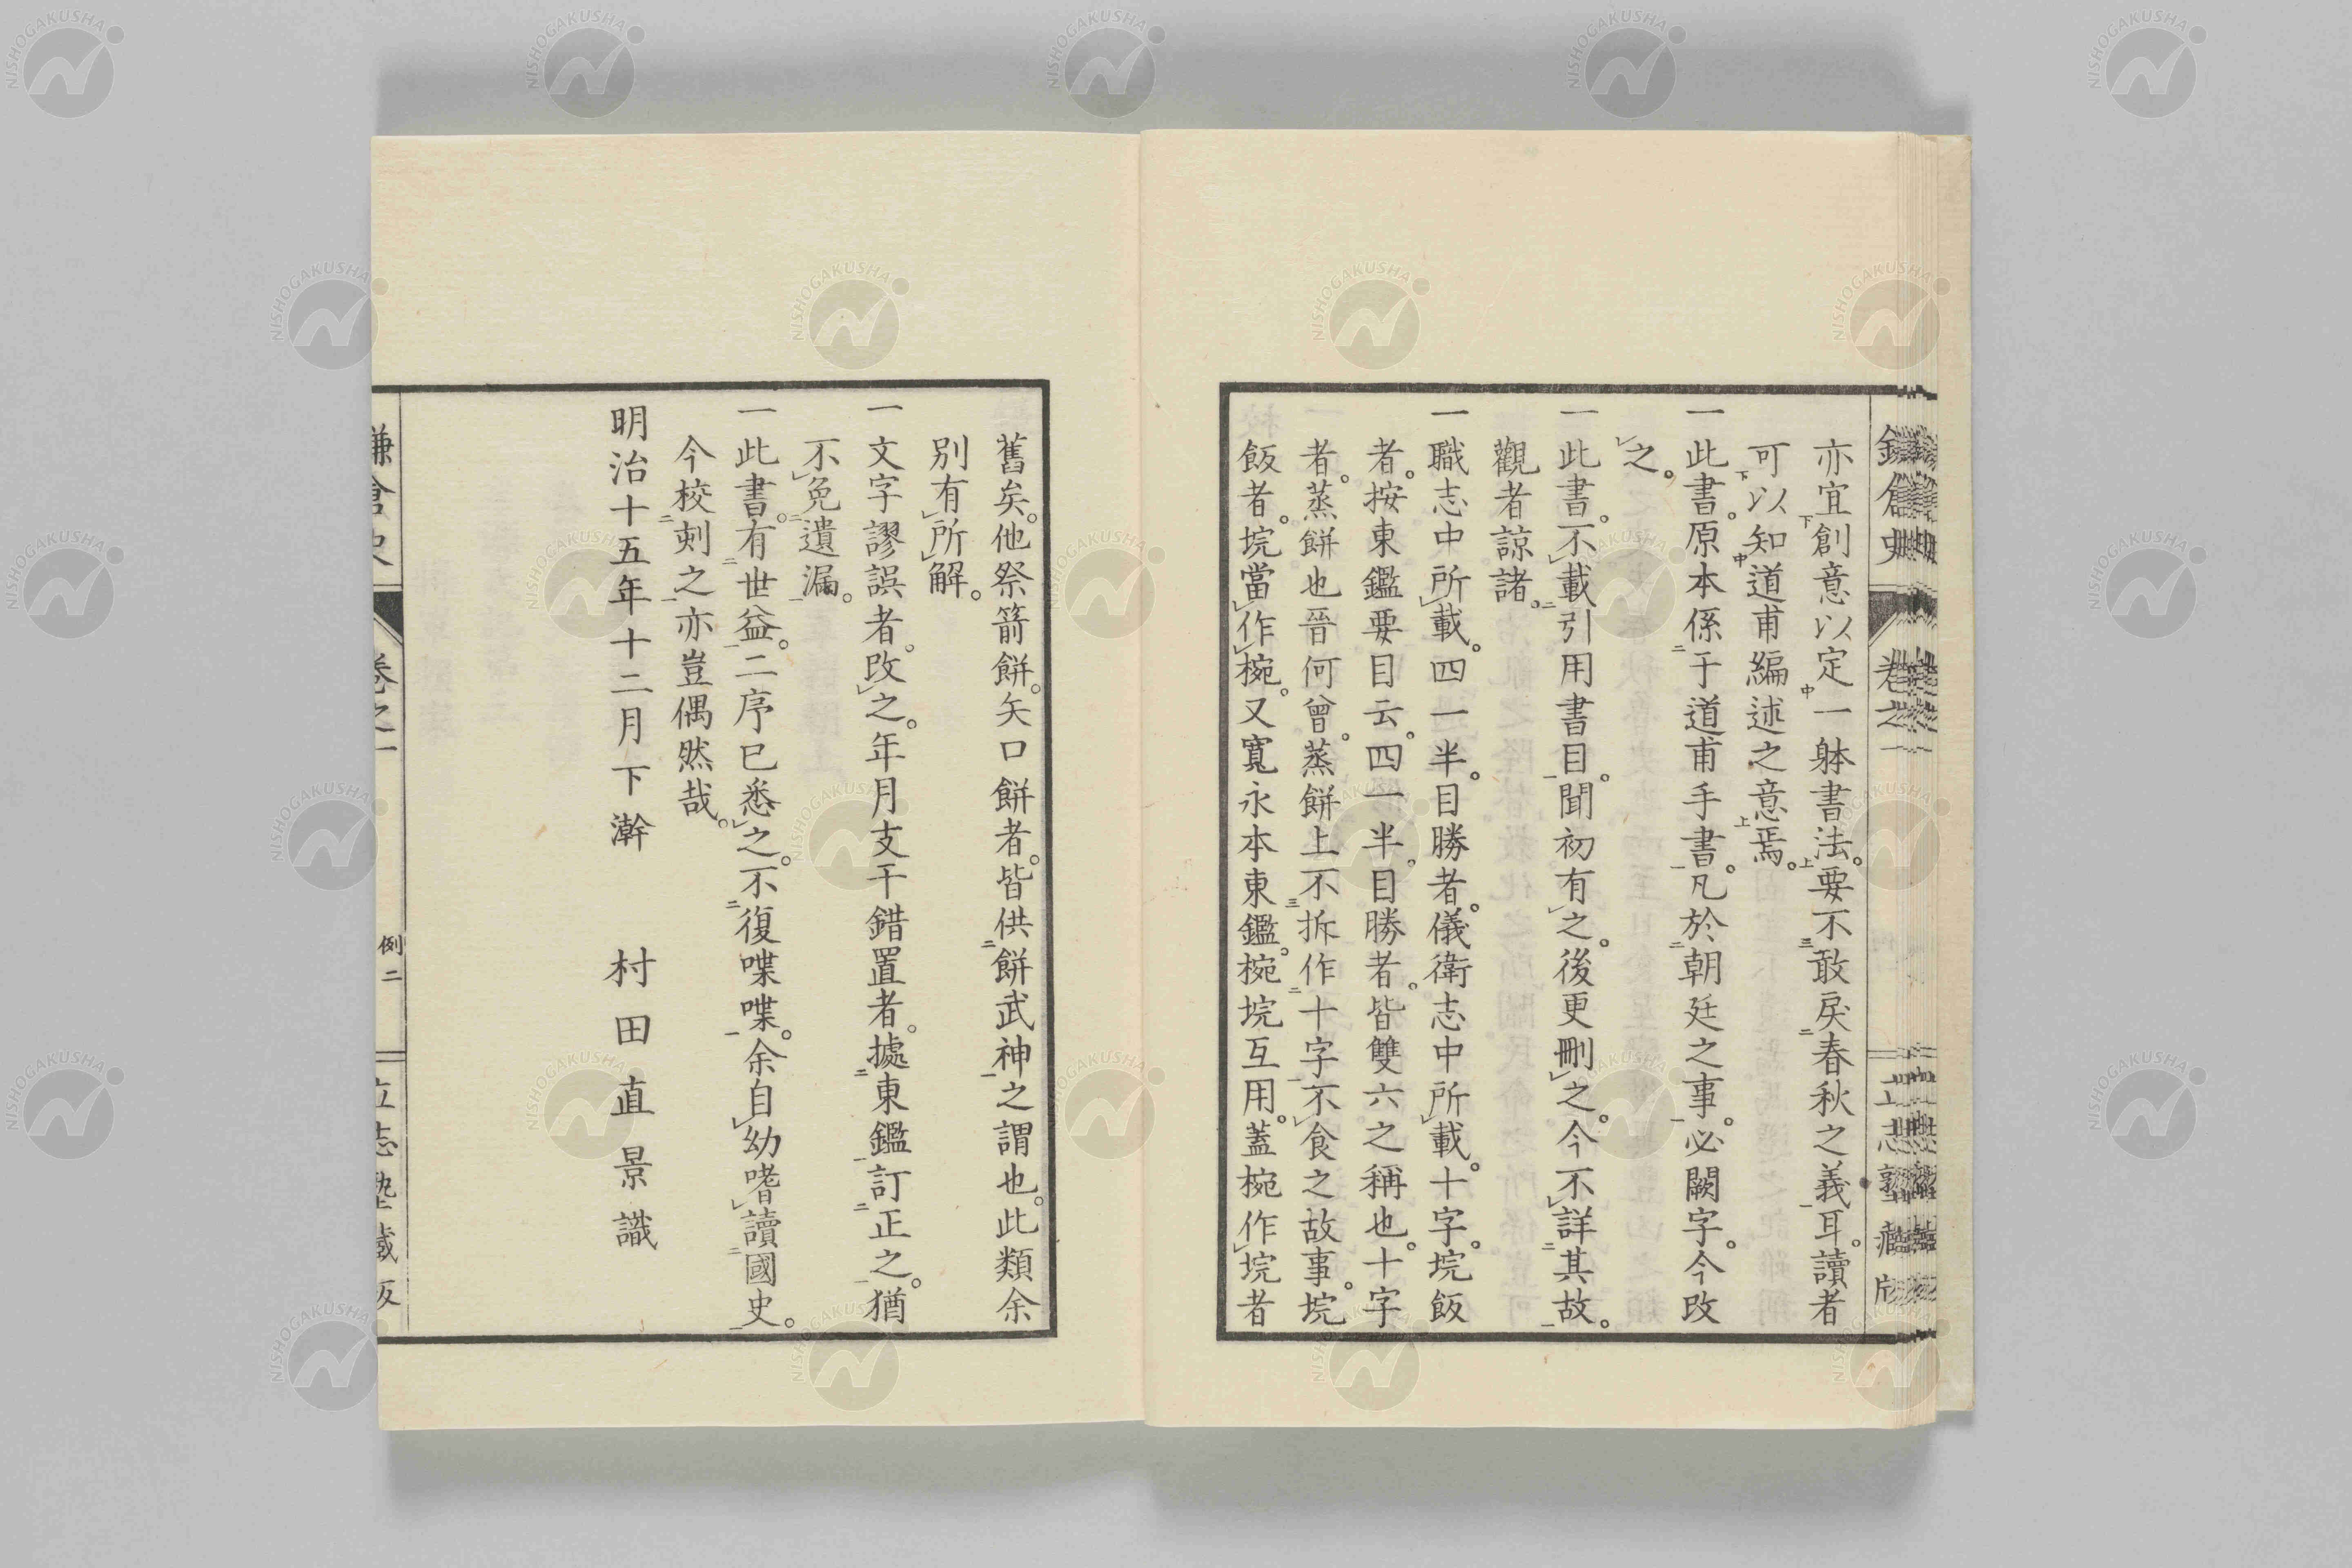 亦宜創意以定一躰書法。要不敢戻春秋之義耳。讀者
可以知道甫編述之意焉。
一此書。原本係于道甫手書。凡於朝廷之事。必闕字。今改
之。
一此書。不載引用書目。聞初有之。後更刪之。今不詳其故。
觀者諒諸。
一職志中所載。四一半。目勝者。儀衛志中所載。十字。垸飯
者。按東鑑要目云。四一半。目勝者。皆雙六之稱也。十字
者。蒸餅也晉何曾。蒸餅上不拆作十字不食之故事。垸
飯者。垸當作椀。又寬永本東鑑。椀垸互用。蓋椀作垸者
舊矣。他祭箭餅。矢口餅者。皆供餅武神之謂也。此類余
別有所解。
一文字謬誤者。改之。年月支干錯置者。據東鑑訂正之。猶
不免遺漏。
一此書。有世益。二序已悉之。不復喋喋。余自幼嗜讀國史。
今校刻之亦豈偶然哉。
明治十五年十二月下澣 村田直景識
鎌倉史 卷之一 例二 立志塾藏版
NISHOGAKUSHA